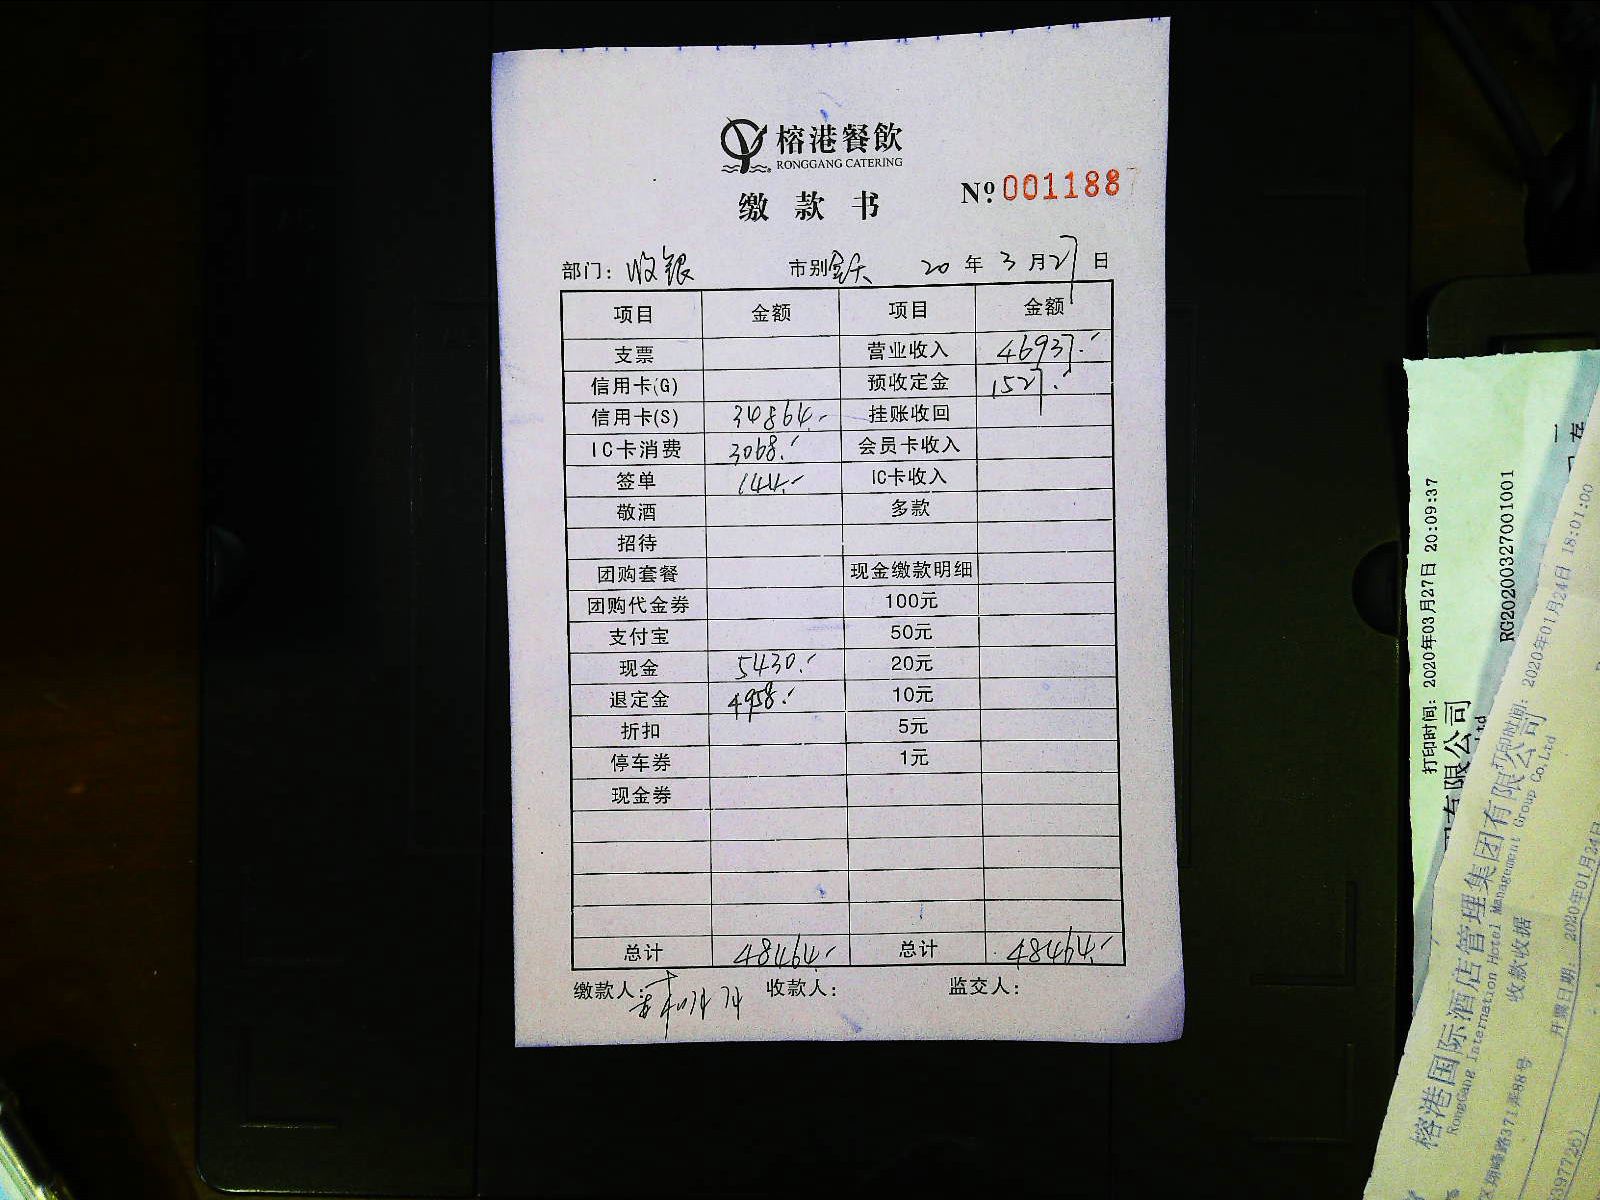 榕港餐飲
RONGGANG CATERING
缴款书
№ 0011887
部门：收银 市别 全天 20 年 3 月 27 日
项目 金额 项目 金额
支票 营业收入 46937.-
信用卡(G) 预收定金 1527.-
信用卡(S) 34864.- 挂账收回
IC卡消费 3068.- 会员卡收入
签单 144.- IC卡收入
敬酒 多款
招待
团购套餐 现金缴款明细
团购代金券 100元
支付宝 50元
现金 5430.- 20元
退定金 4958.- 10元
折扣 5元
停车券 1元
现金券
总计 48464.- 总计 48464.-
缴款人： 收款人： 监交人：
打印时间：2020年03月27日 20:09:37
RG20200327001001
有限公司
打印时间：2020年01月24日 18:01:00
榕港国际酒店管理集团有限公司
RongGang International Hotel Management Group Co.Ltd
收款收据
开票日期：2020年01月24日
371弄88号